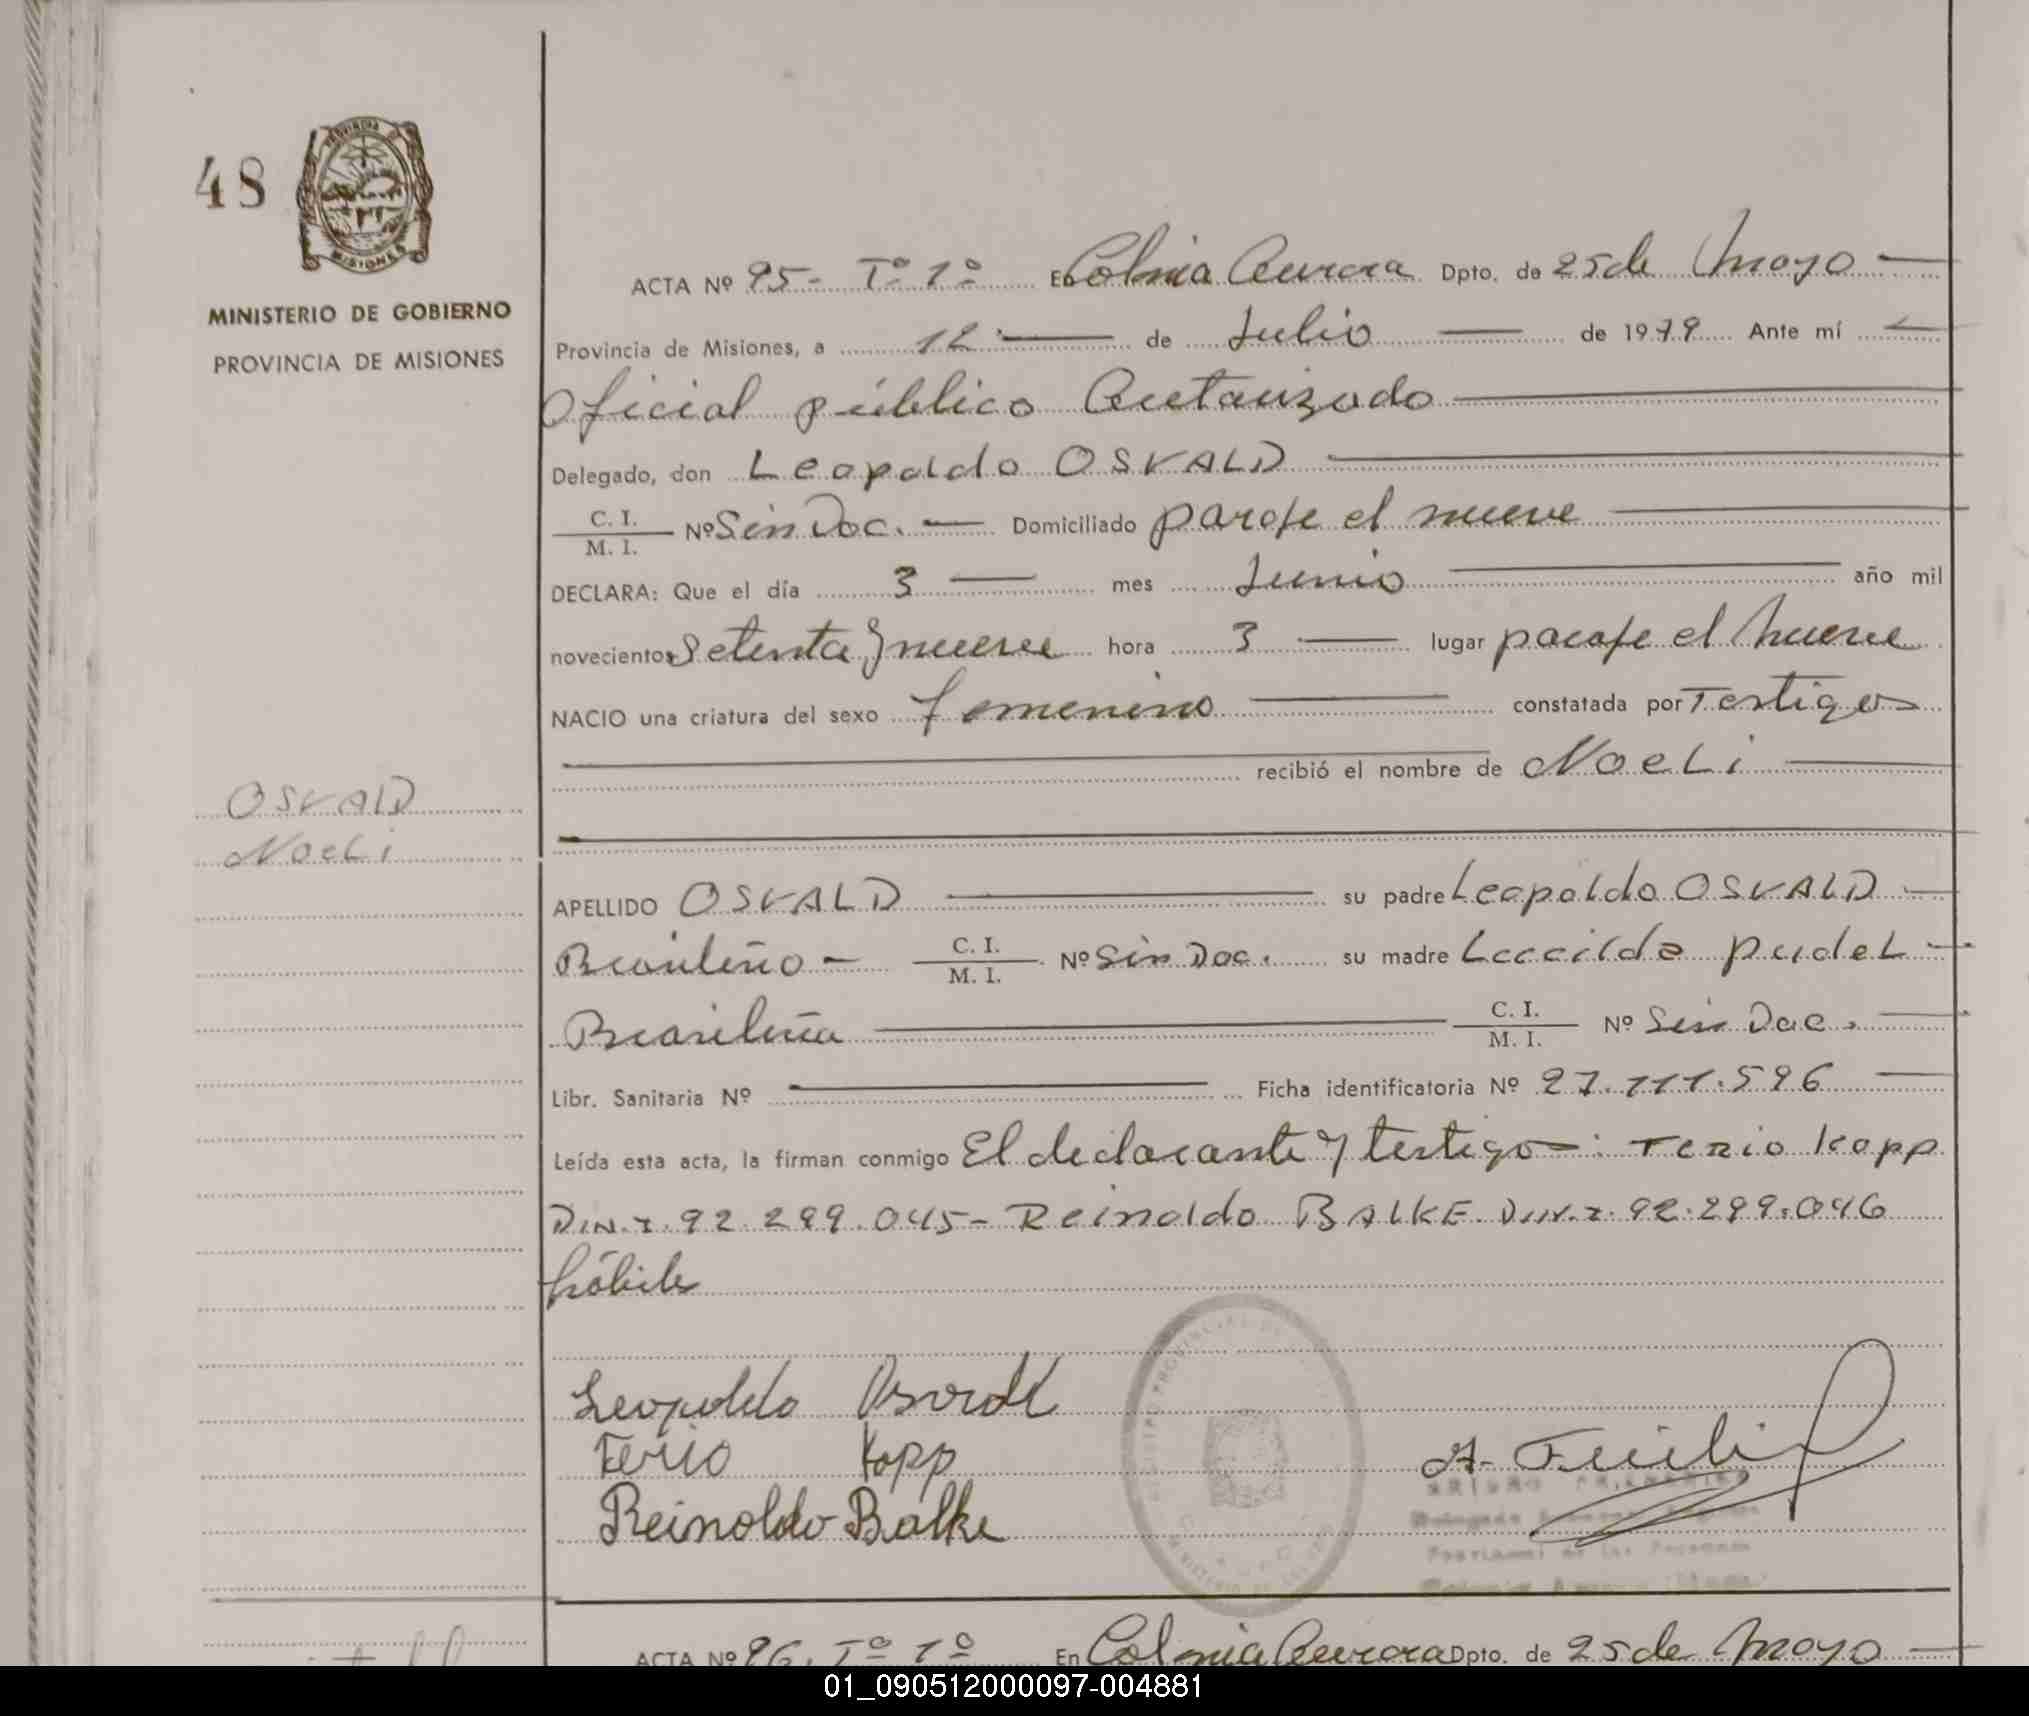 48
PROVINCIA DE
MISIONES
MINISTERIO DE GOBIERNO
PROVINCIA DE MISIONES
ACTA Nº 95- Tº 1º En Colonia Aurora Dpto. de 25 de Mayo
Provincia de Misiones, a 12 de Julio de 1979 Ante mí
Oficial público Autorizado
Delegado, don Leopoldo OSVALD
C. I.
M. I. Nº Sin Doc. Domiciliado paraje el nueve
DECLARA: Que el día 3 mes Junio año mil
novecientos setenta y nueve hora 3 lugar paraje el nueve
NACIO una criatura del sexo femenino constatada por Testigos
recibió el nombre de Noeli
OSVALD
Noeli
APELLIDO OSVALD su padre Leopoldo OSVALD
Brasileño C. I.
M. I. Nº Sin Doc. su madre Lucilda pudel
Brasileña C. I.
M. I. Nº Sin Doc.
Libr. Sanitaria Nº Ficha identificatoria Nº 27.111.596
Leída esta acta, la firman conmigo El declarante y testigos: Terio Kopp
D.N.I. 92.299.045- Reinoldo BALKE D.N.I. 92.299.046
hábiles
Leopoldo Osvald
Terio Kopp
Reinoldo Balke
ACTA Nº 96. Tº 1º En Colonia Aurora Dpto. de 25 de Mayo
01_090512000097-004881